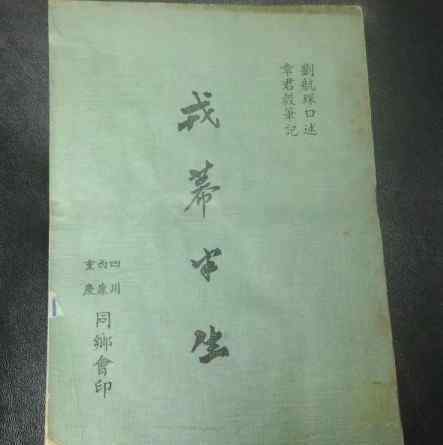 劉航琛口述
章君穀筆記
戎幕半生
四川
西康
重慶
同鄉會印